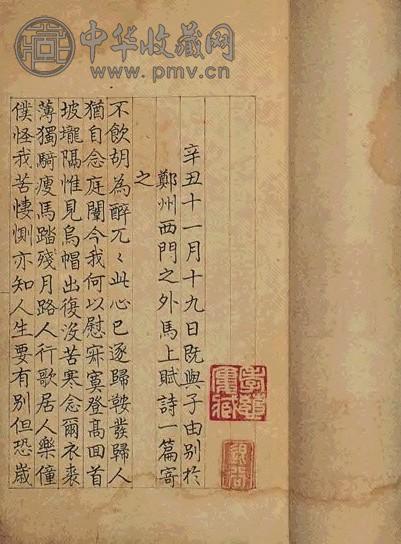 中华收藏网
www.pmv.cn
辛丑十一月十九日既與子由別於
鄭州西門之外馬上賦詩一篇寄
之
不飲胡為醉兀〻此心已逐歸鞍發歸人
猶自念庭闈今我何以慰寂寞登高回首
坡壠隔惟見烏帽出復沒苦寒念爾衣裘
薄獨騎瘦馬踏殘月路人行歌居人樂僮
僕怪我苦悽惻亦知人生要有別但恐歲